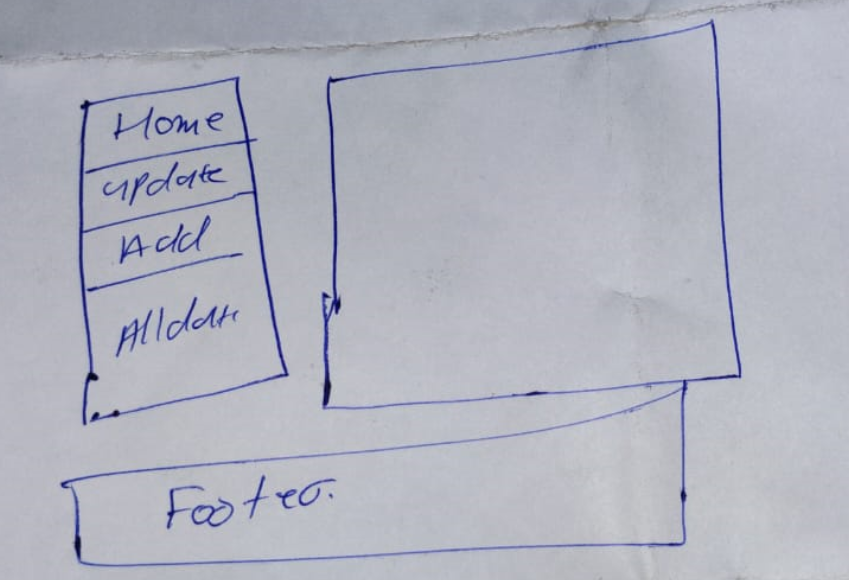 Home
update
Add
Alldata
Footer.